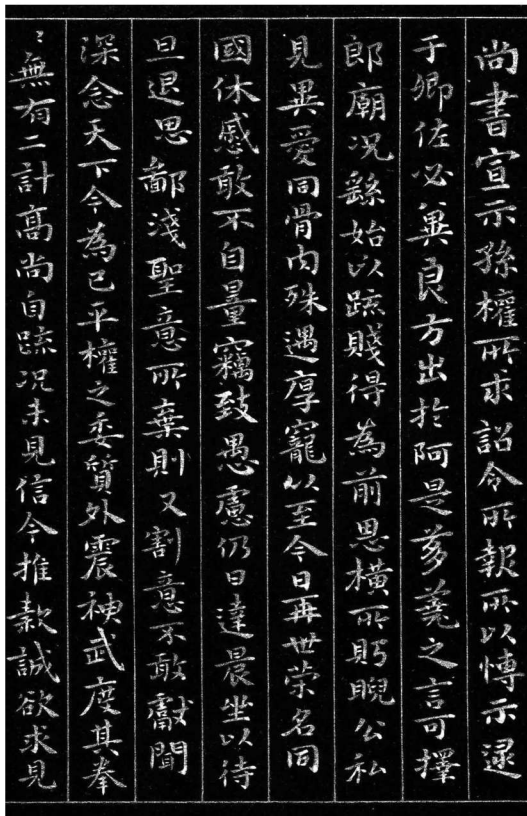 尚書宣示孫權所求詔令所報所以慱示逯
于卿佐必冀良方出於阿是芻蕘之言可擇
郎廟況繇始以踈賤得為前恩橫所眄睨公私
見異愛同骨肉殊遇厚寵以至今日再世榮名同
國休慼敢不自量竊致愚慮仍日達晨坐以待
旦退思鄙淺聖意所棄則又割意不敢獻聞
深念天下今為已平權之委質外震神武度其拳
〻無有二計高尚自踈况未見信今推款誠欲求見